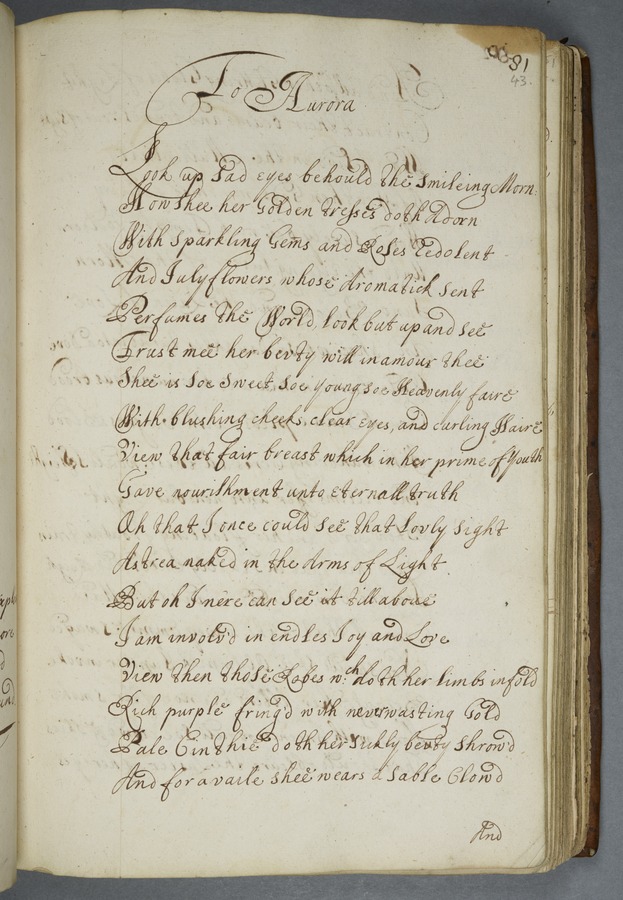 To Aurora
43.
Look up Sad eyes behould the Smileing Morn:
How shee her Golden tresses doth Adorn
With Sparkling Gems and Roses Redolent
And July flowers whose Aromatick Sent
Perfumes the World, look but up and See
Trust mee her bevty will inamour thee
Shee is Soe Sweet, Soe young soe Heavenly faire
With blushing cheeks, clear eyes, and curling Haire
View that fair breast which in her prime of Youth
Gave nourishment unto eternall truth
Oh that I once could See that Lovly Sight
Astrea naked in the Arms of Light
But oh I nere can See it till above
I am involv'd in endles Joy and Love
View then those Robes wch doth her limbs infold
Rich purple fring'd with never wasting Gold
Pale Cinthie doth her Sickly bevty Shrowd
And for a vaile shee wears a Sable Clowd
And